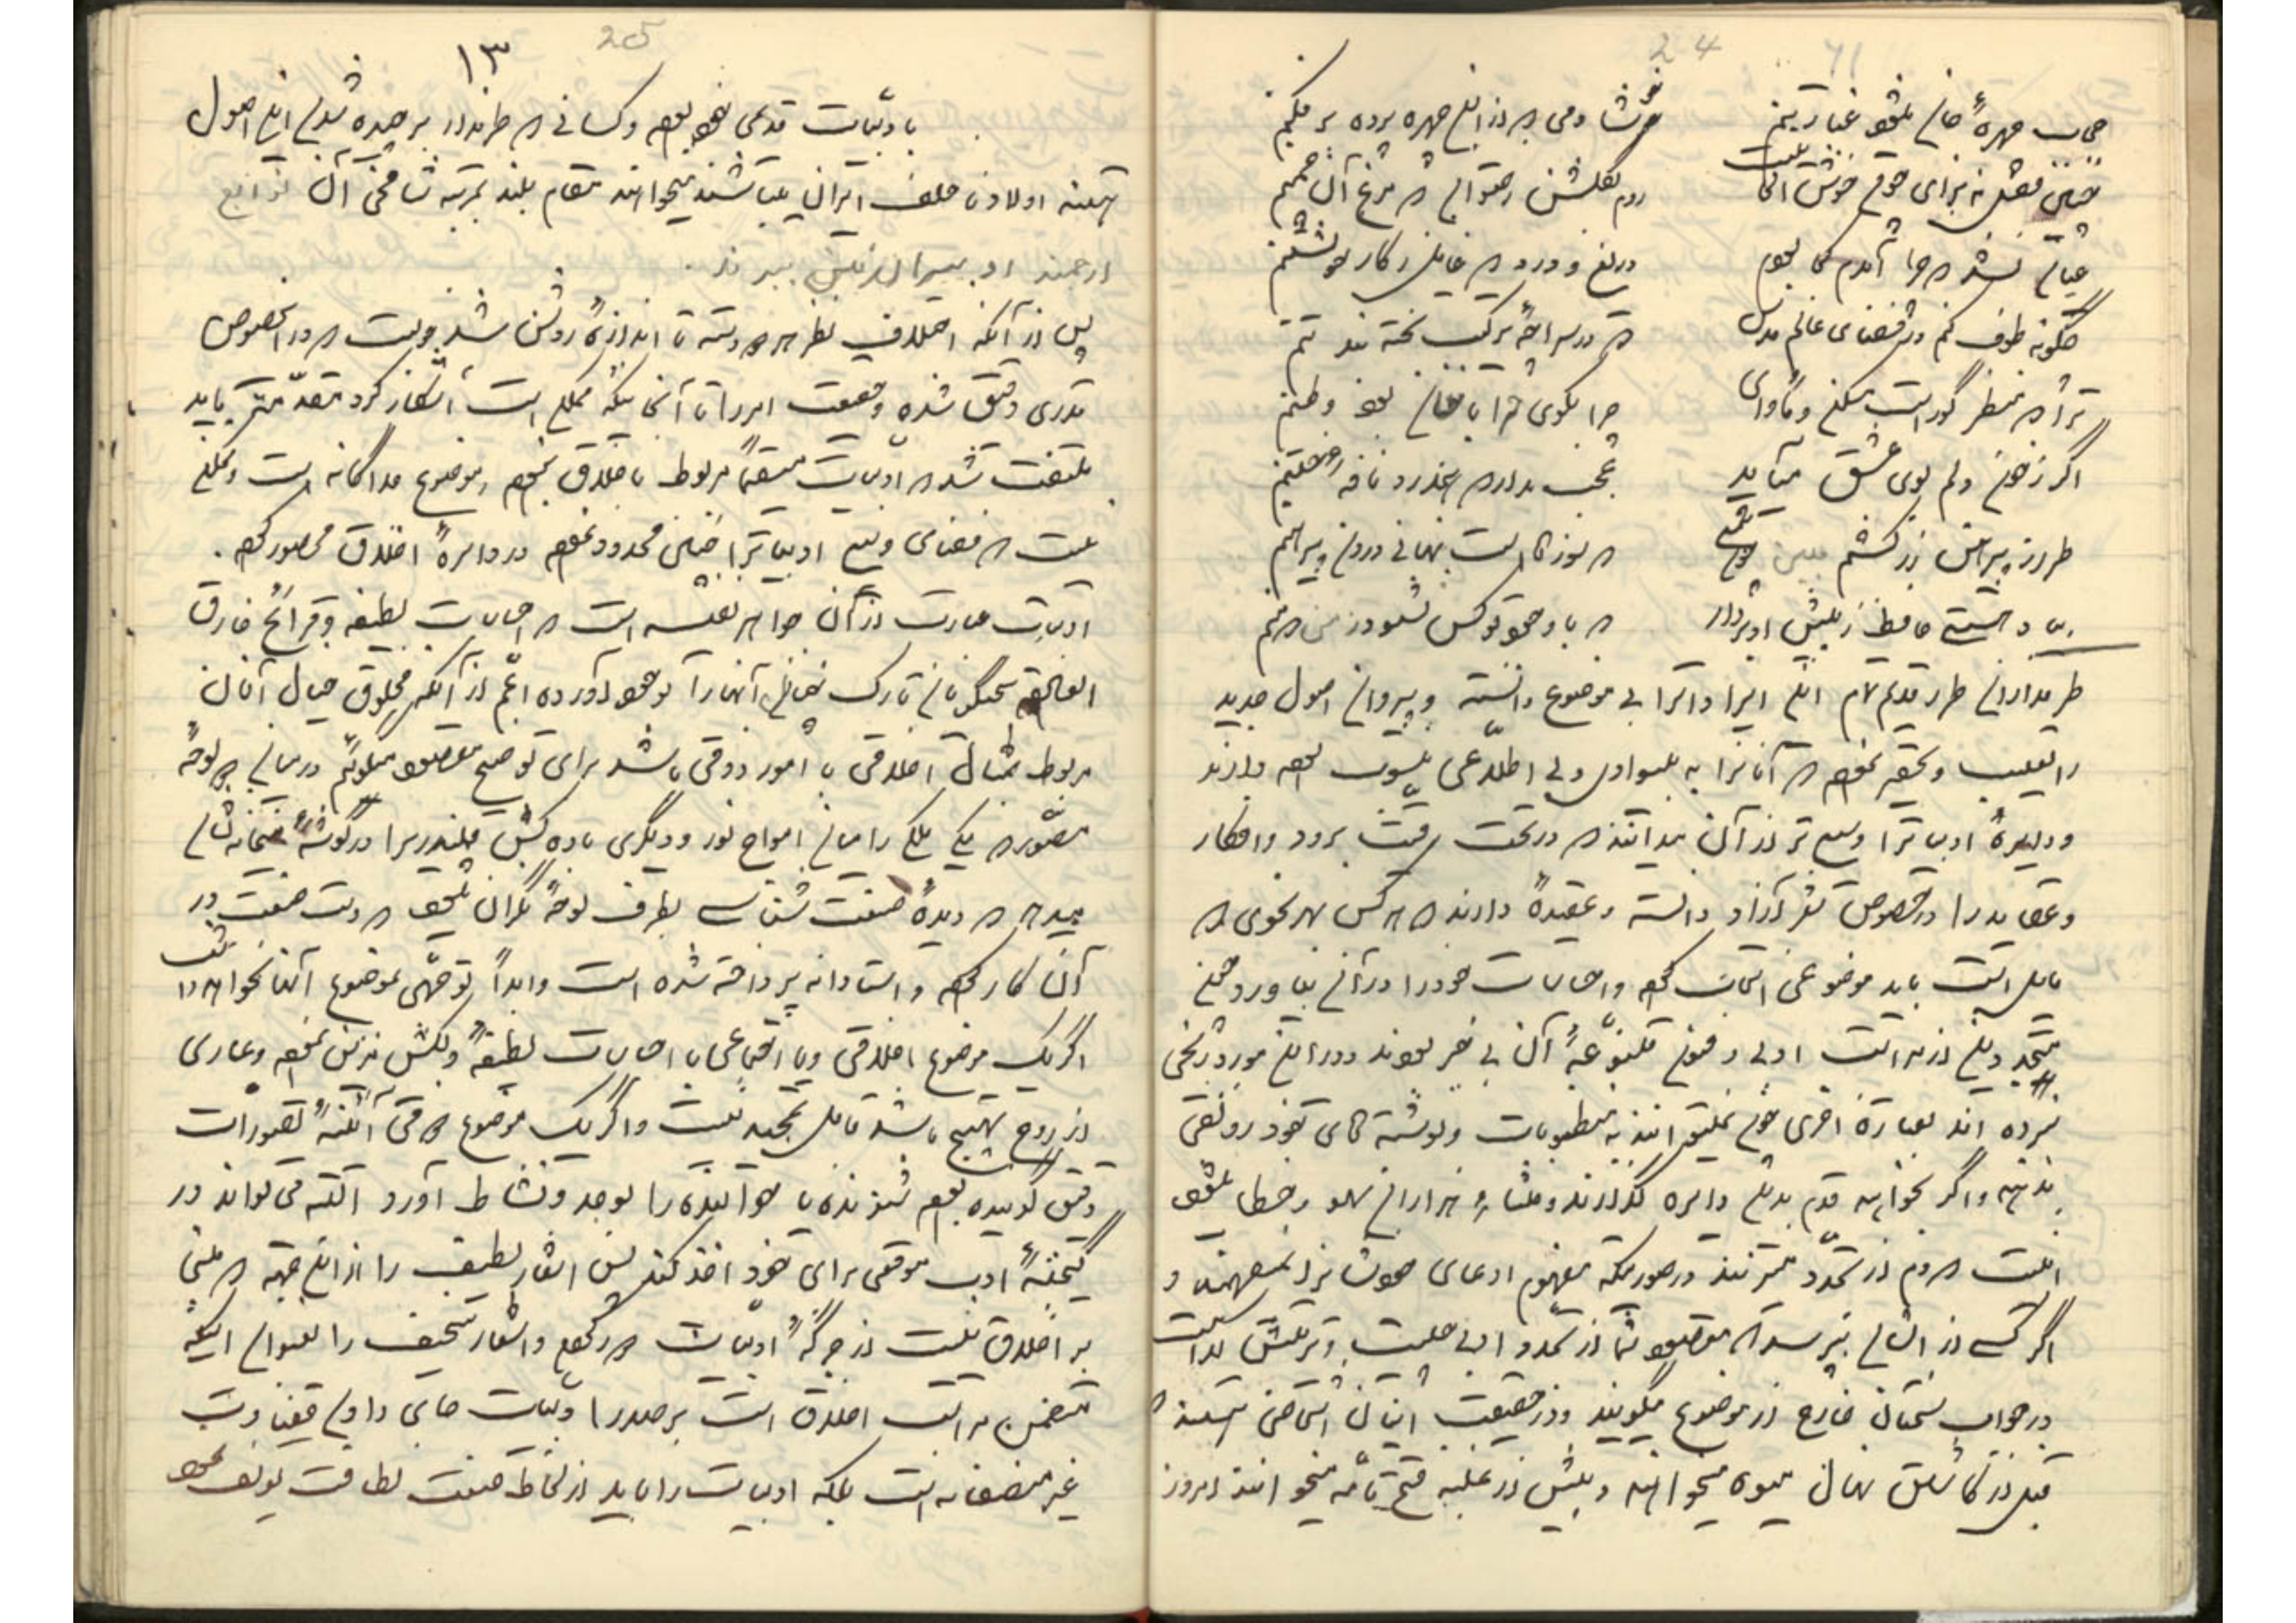 24
حجاب چهرهٔ جان میشود غبار تنم
خوشا دمی که از این چهره پرده بر فکنم
چنین قفس نه سزای چو من خوش الحانیست
روم بگلشن رضوان که مرغ آن چمنم
عیان نشد که چرا آمدم کجا بودم
دریغ و درد که غافل ز کار خویشتنم
چگونه طوف کنم در فضای عالم قدس
که در سراچهٔ ترکیب تخته بند تنم
ترا که منظر حور است مسکن و مأوای
چرا بکوی خراباتیان بود وطنم
اگر ز خون دلم بوی عشق میآید
عجب مدار که همدرد نافه ختنم
طراز پیراهن زرکشم مبین چون شمع
که سوزهاست نهانی درون پیراهنم
بیا و هستی حافظ ز پیش او بردار
که با وجود تو کس نشنود ز من که منم
طرفداران طرز قدیم تمام این ایرادات را بی موضوع دانسته و پیروان اصول جدید
را تعقیب و تحقیر نموده که آنانرا به بیسوادی و بی اطلاعی منسوب نموده دارند
و دایرهٔ ادبیات را وسیع تر از آن میدانند که در تحت رقیت برود و افکار
و عقاید را در خصوص شعر آزاد دانسته و عقیده دارند که هر کس بهر نحوی که
مایل است باید موضوعی انتخاب کرده و احساسات خود را در آن بیاورد
ادبی و فنون متنوعهٔ آن بی خبر بوده و در این مورد رنجی
نبرده اند بعبارة اخری چون نمیتوانند به مطبوعات و نوشته های خود رونقی
بدهند و اگر بخواهند قدم بدین دایره گذارند و منشاء هزاران سهو و خطا میشوند
اینست که دم از تجدد میزنند در صورتیکه مفهوم ادعای خودشانرا نمیفهمند و
اگر کسی از ایشان بپرسد که مقصود شما از تجدد ادبی چیست و ترتیبش کدام است
در جواب سخنان خارج از موضوع میگویند و در حقیقت اینان اشخاصی هستند که
قبل از کاشتن نهال میوه میخواهند و پیش از غلبه فتح نامه میخوانند امروز
25
۱۳
با ادبیات قدیمی نموده و کسانی که طرفدار برچیده شدن این اصول
هستند اولاد نا خلف ایران میباشند میخواهند مقام بلند مرتبه شامخی آن
پس از آنکه اختلاف نظر هر دو دسته تا اندازهٔ روشن شد خوبست که در اینخصوص
قدری دقیق شده و حقیقت امر را تا آنجائیکه ممکن است آشکار کرد مقدمتاً باید
ملتفت شد که ادبیات مستقیماً مربوط با اخلاق نبوده و موضوع جداگانه است و ممکن
نیست که فضای وسیع ادبیات را چنین محدود نموده در دایرهٔ اخلاق محصور کرد.
ادبیات عبارت از آن جواهر نفیسه است که احساسات لطیفه و قرائح خارق
العاده سخنگویان نازک خیال آنها را بوجود آورده اعم از آنکه مخلوق خیال آنان
مربوط بمسائل اخلاقی یا امور ذوقی باشد برای توضیح مقصود میگوئیم در میان دو لوحهٔ
مصور که یکی ملکی را میان امواج نور و دیگری باده کش قلندری را در گوشهٔ میخانه نشان
میدهد دیدهٔ صنعت شناس بطرف لوحهٔ نگران میشود که دست صنعت در
آن کار کرده و استادانه پرداخته شده است و ابداً توجهی بموضوع آنها نخواهد داشت
اگر یک موضوع اخلاقی و یا اجتماعی با احساسات لطیفهٔ دلکش مزین نبوده و عاری
از روح تهییج باشد قابل تمجید نیست و اگر یک موضوع که فی آئینهٔ تصورات
دقیق گوینده بوده شنونده یا خواننده را بوجد و نشاط آورد البته می تواند در
گنجینهٔ ادب موقعی برای خود اخذ کند پس اشعار لطیف را از این جهة که مبنی
بر اخلاق نیست از جرگهٔ ادبیات رد کردن و اشعار سخیف را بعنوان اینکه
متضمن مراتب اخلاق است بر صدر ادبیات جای دادن قضاوت
غیر منصفانه است بلکه ادبیات را باید از لحاظ صنعت لطافت